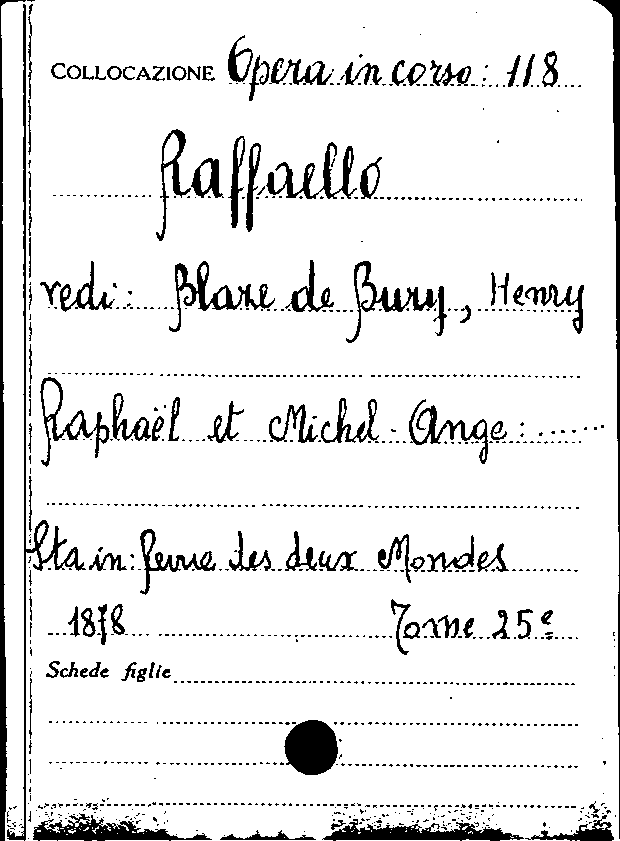 COLLOCAZIONE Opera in corso: 118
Raffaello
vedi: Blaze de Bury, Henry
Raphaël et Michel-Ange: ......
Sta in: Revue des deux Mondes
1878 Tome 25e
Schede figlie